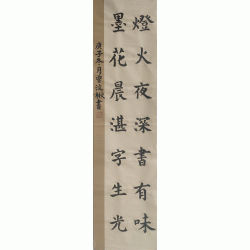 燈火夜深書有味
墨花晨湛字生光
庚子冬月
書